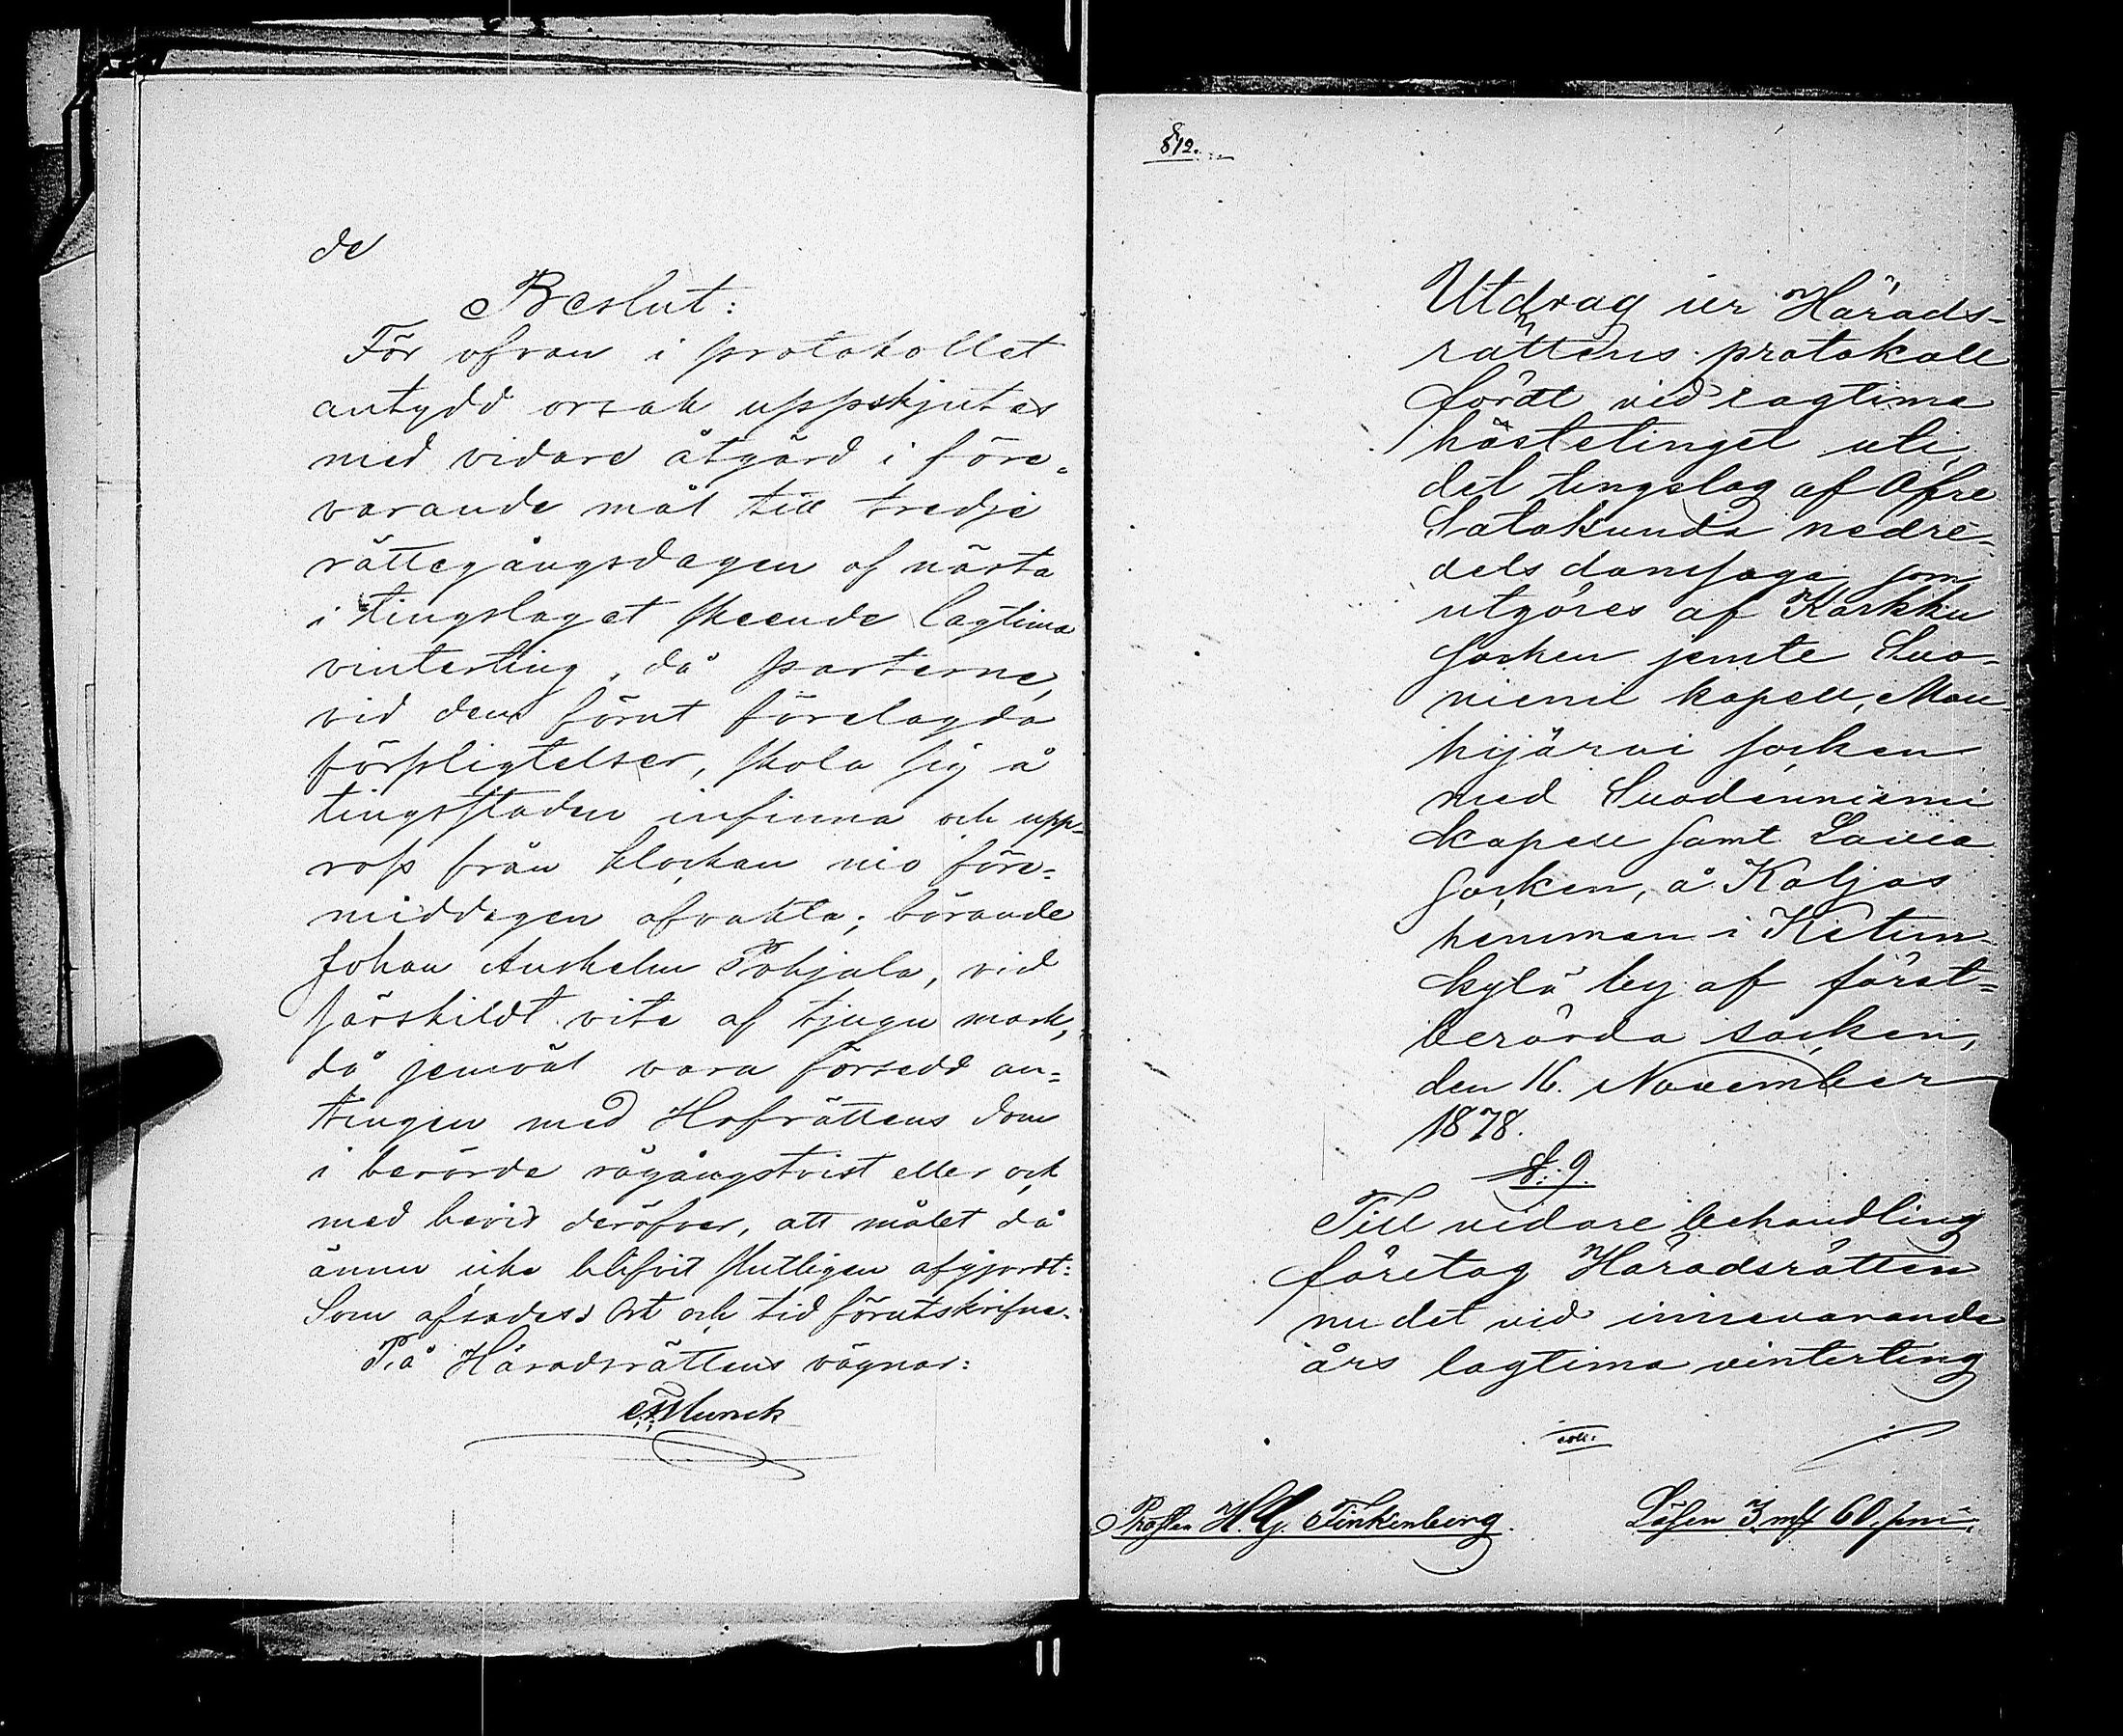 de
Beslut:
För ofvan i protokollet
antydd orsak uppskjutes
med vidare åtgärd i före-
varande mål till tredje
rättegångsdagen af nästa
i tingslaget skeende lagtima
vinterting, då parterne,
vid dem förut förelagda
förpligtelser, skola sig å
tingsstaden infinna och upp-
rop från klockan nio före-
middagen afvakta; börande
Johan Anshelm Pohjala, vid
särskildt vite af tjugu mark,
då jemväl vara försedd an-
tingen med Hofrättens dom
i berörde rågångstvist eller ock
med bevis deröfver, att målet då
ännu icke blifvit slutligen afgjordt:
Som afsades Ort och tid förutskrifne.
På Häradsrättens vägnar:
Munck
§ 12.
Utdrag ur Härads-
rättens protokoll
fördt vid lagtima
höstetinget uti
det tingslag af Öfre
Satakunda nedre-
dels domsaga som
utgöres af Karkku
socken jemte Suo-
niemi kapell, Mou-
hijärvi socken
med Suodenniemi
kapell samt Lavia
socken, å Kaljas
hemman i Ketun-
kylä by af först-
berörda socken,
den 16. November
1878.
§. 9.
Till vidare behandling
företog Häradsrätten
nu det vid innevarande
års lagtima vinterting
Prosten H. G. Finkenberg.
Lösen 3 mf 60 pni.